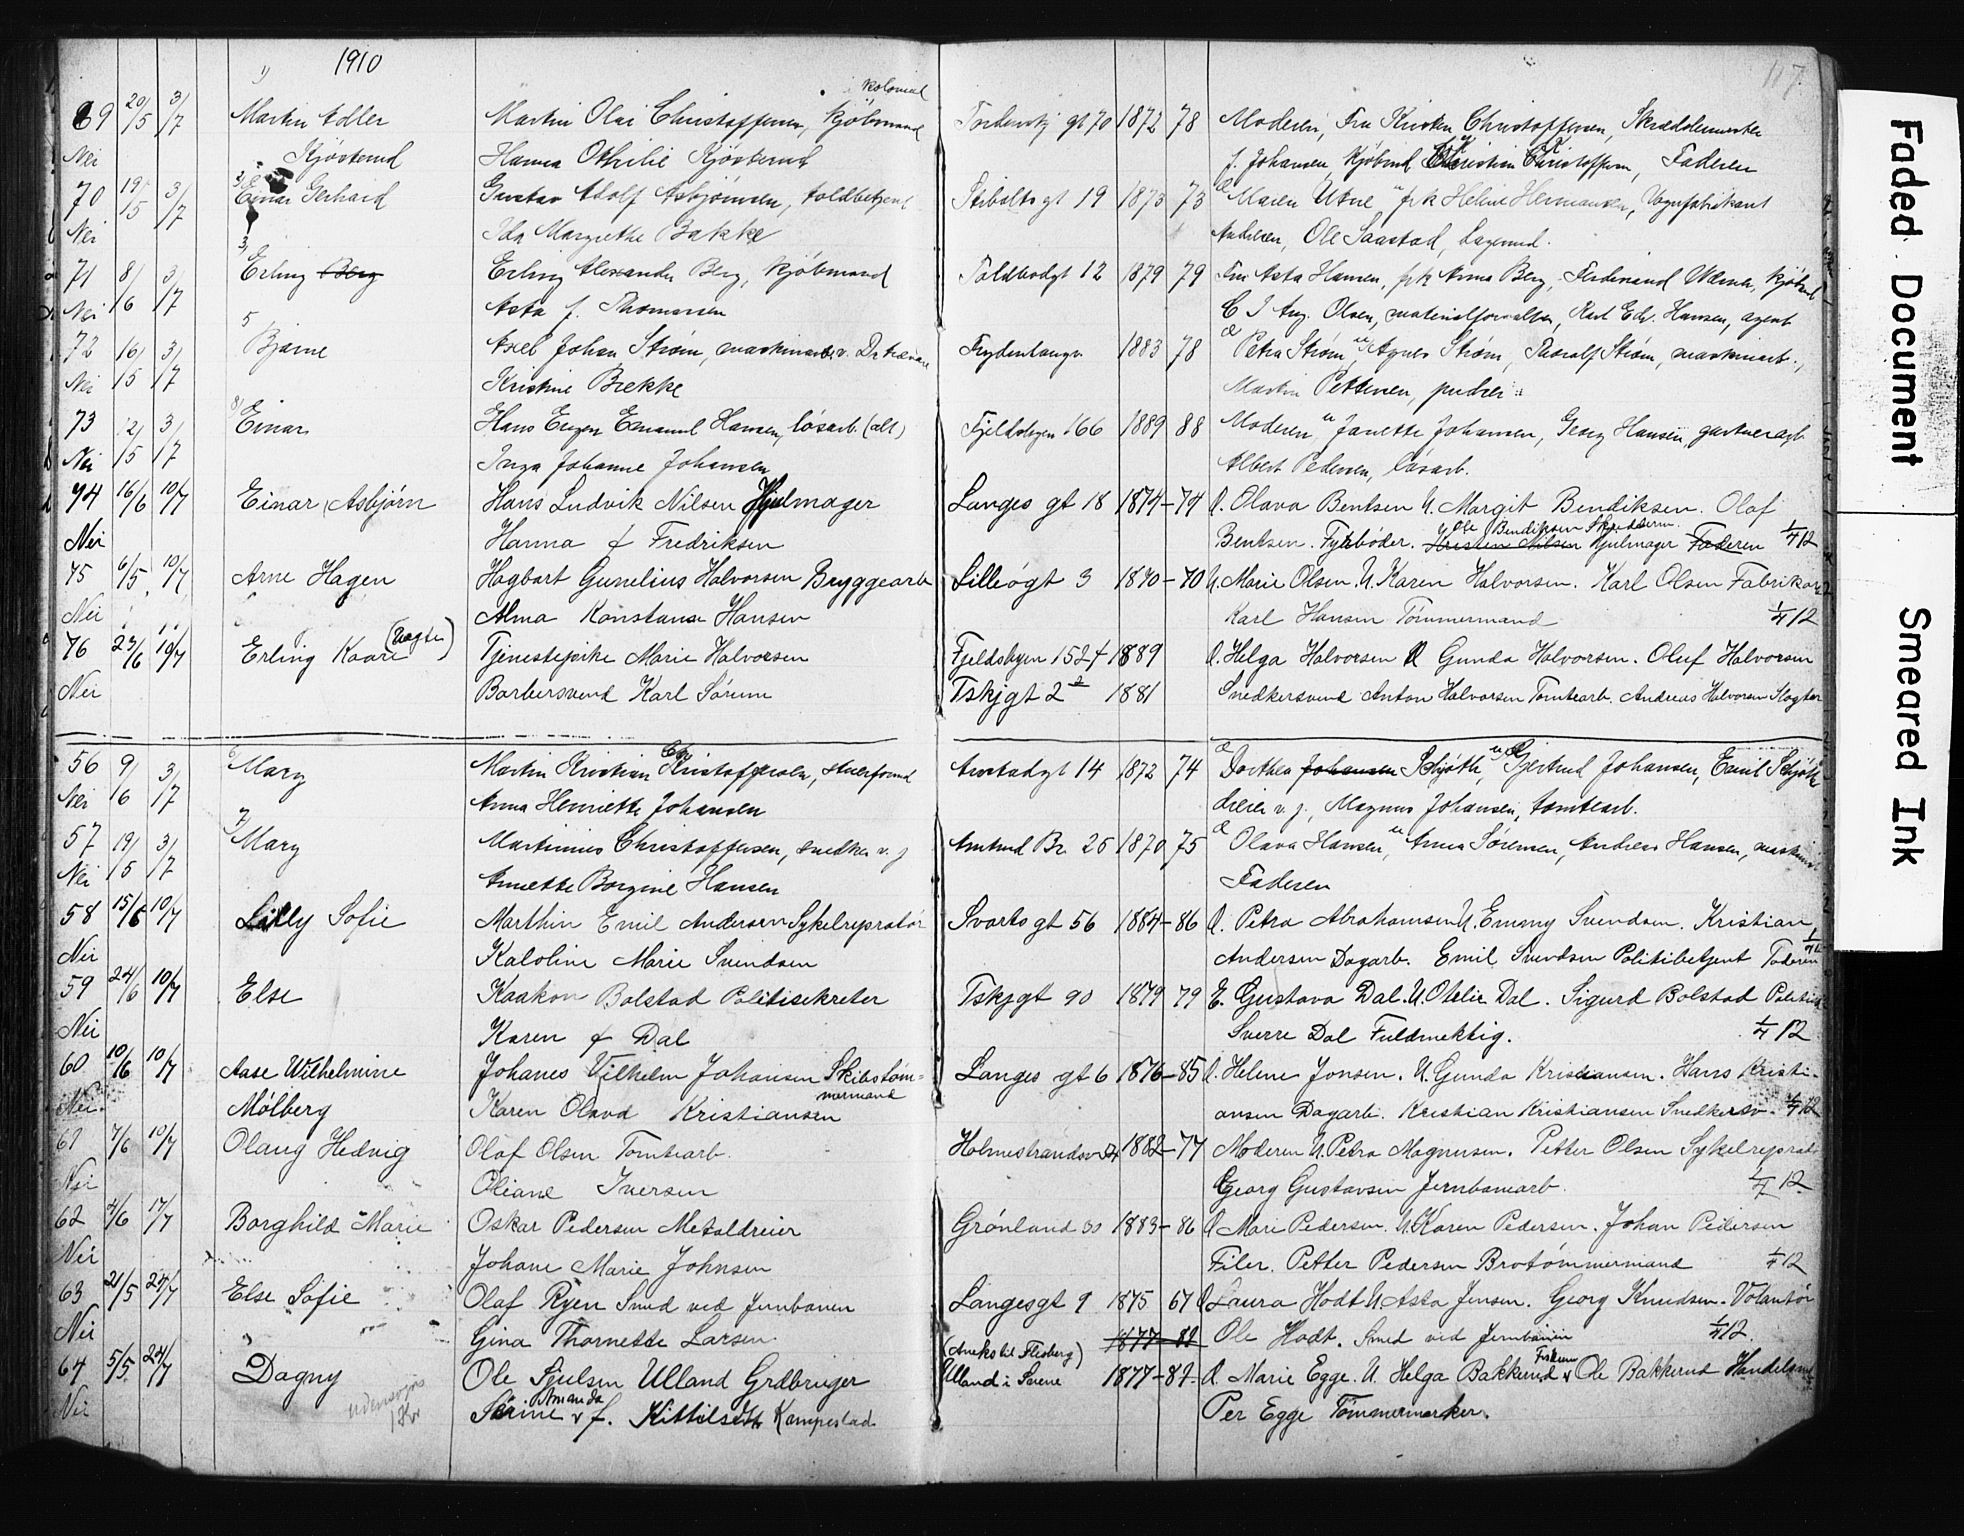 1910
117.
69 20/5 3/7 1) Martin Adler Martin Olai Christoffersen, kolonial kjøbmand Tordenskj gt 70 1872 78 Moderen, Fru Kirsten Christoffersen, Skræddermester
Nei Kjøsterud Hanna Othilie Kjøsterud J. Johansen, Kjøbmd Kristian Christoffersen, Faderen
70 19/5 3/7 Einar Gerhard Gustav Adolf Asbjørnsen, toldbetjent Stibolts gt 19 1873 73 Maren Utne frk Heline Hermansen, Vognfabrikant
Nei Ida Margrethe Bakke Andresen, Ole Saastad, Lagermd.
71 8/6 3/7 3) Erling Berg Erling Alexander Berg, kjøbmand Toldbodgt 12 1879 79 Fru Asta Hansen, frk Anna Berg, Ferdinand Wærna, kjøbmd
Nei Asta f. Thomassen C J Aug. Olsen, materialforvalter, Karl Edv. Hansen, agent
72 16/5 3/7 5 Bjarne Axel Johan Strøm, maskinarb. v. Dr.træ Frydenlungv. 1883 78 Petra Strøm, u Agnes Strøm, Thoralf Strøm, maskinarb.,
Nei Kristine Brekke Martin Pettersen, pudser
73 12/5 3/7 8) Einar Hans Eugen Emanuel Hansen, løsarb. (alt) Fjeldsbyen 166 1889 88 Moderen u Janette Johansen, Georg Hansen, gartnerarb
Nei Inga Johanne Johansen Albert Pedersen, løsarb.
74 16/6 10/7 Einar Asbjørn Hans Ludvik Nilsen Hjulmager Langes gt 18 1874-74 Olava Bentsen U. Margit Bendiksen. Olaf
Nei Hanna f Fredriksen Bentsen. Fyrbøder. Kristen Nilsen Ole Bendiksen Skrederm. Hjulmager Faderen 1/4 12
75 6/5 10/7 Arne Hagen Hagbart Gunelius Halvorsen Bryggearb Lilleøgt 3 1870-70 U. Marie Olsen. U. Karen Halvorsen. Karl Olsen Fabrikar
Nei Alma Konstanse Hansen Karl Hansen Tømmermand 1/4 12
76 23/6 10/7 Erling Kaare (uegte) Tjenestepike Marie Halvorsen Fjeldsbyen 152 f 1889 Helga Halvorsen Gunda Halvorsen. Oluf Halvorsen
Nei Barbersvend Karl Sørum Tskjgt 2 1881 Snedkersvend Anton Halvorsen Tomtearb. Andreas Halvorsen Slogter
56 9/6 3/7 6) Mary Martin Kristian Kristoffersen, stuerformd Arvstadgt 14 1872 74 Dorthea Johansen Schjøth, u Gjertrud Johansen, Emil Schjøth
Nei Anna Henriette Johansen dreier v. j., Magnus Johansen, tomtearb.
57 19/5 3/7 7) Mary Martinius Christoffersen, snedker v. j Amtmd Bl. 25 1870 75 Olava Hansen, u Anna Sørensen, Andreas Hansen, maskin
Nei Annette Borgine Hansen Faderen
58 15/6 10/7 Lilly Sofie Marthin Emil Andersen Sykelrepratør Svarts gt 56 1884-86 Petra Abrahamsen U. Emmy Svendsen. Kristian
Nei Kaloline Marie Svendsen Andersen Dagarb. Emil Svendsen Politibetjent Faderen
59 24/6 10/7 Else Haakon Bolstad Politisekretær Tskjgt 90 1879 79 E. Gustava Dal. U. Otelie Dal. Sigurd Bolstad Politi
Nei Karen f Dal Sverre Dal Fuldmektig. 1/4 12
60 10/6 10/7 Aase Wilhelmine Johanes Vilhelm Johansen Skibstømmermand Langes gt 6 1876-85 Helene Jonsen. U. Gunda Kristiansen. Hans Kristi-
Nei Mølberg Karen Olava Kristiansen ansen Dagarb. Kristian Kristiansen Snedkersv. 1/4 12
61 7/6 10/7 Olaug Hedvig Olaf Olsen Tomtearb. Holmestrandsv 1882-77 Moderen U. Petra Magnusen. Petter Olsen Sykelreprat
Nei Oliane Iversen Georg Gustavsen Jernbanearb. 1/4 12.
62 4/6 17/7 Borghild Marie Oskar Pedersen Metaldreier Grønland 30 1883-86 Mari Pedersen. U. Karen Pedersen. Johan Pedersen
Nei Johane Marie Johnsen Filer. Petter Pedersen Brotømmermand 1/4 12
63 21/5 24/7 Else Sofie Olaf Ryen Smed ved Jernbanen Langesgt 9 1875 67 Laura Hodt U. Asta Jensen. Georg Knudsen. Volantør
Nei Gina Thornette Larsen 1877-82 Ole Hodt. Smed ved Jernbanen 1/4 12.
64 5/5 24/7 Dagny Ole Sjulsen Ulland Grdbruger (Aneks til Flesberg) Ulland i Svene 1877-82. Marie Egge. U. Helga Bakkerud Frkum v Ole Bakkerud Handelsmd
Nei udenvogns 1 Kr Sørine Amanda v f. Kittilsdt Kampestad Per Egge Tømmermerker.
Faded Document
Smeared Ink